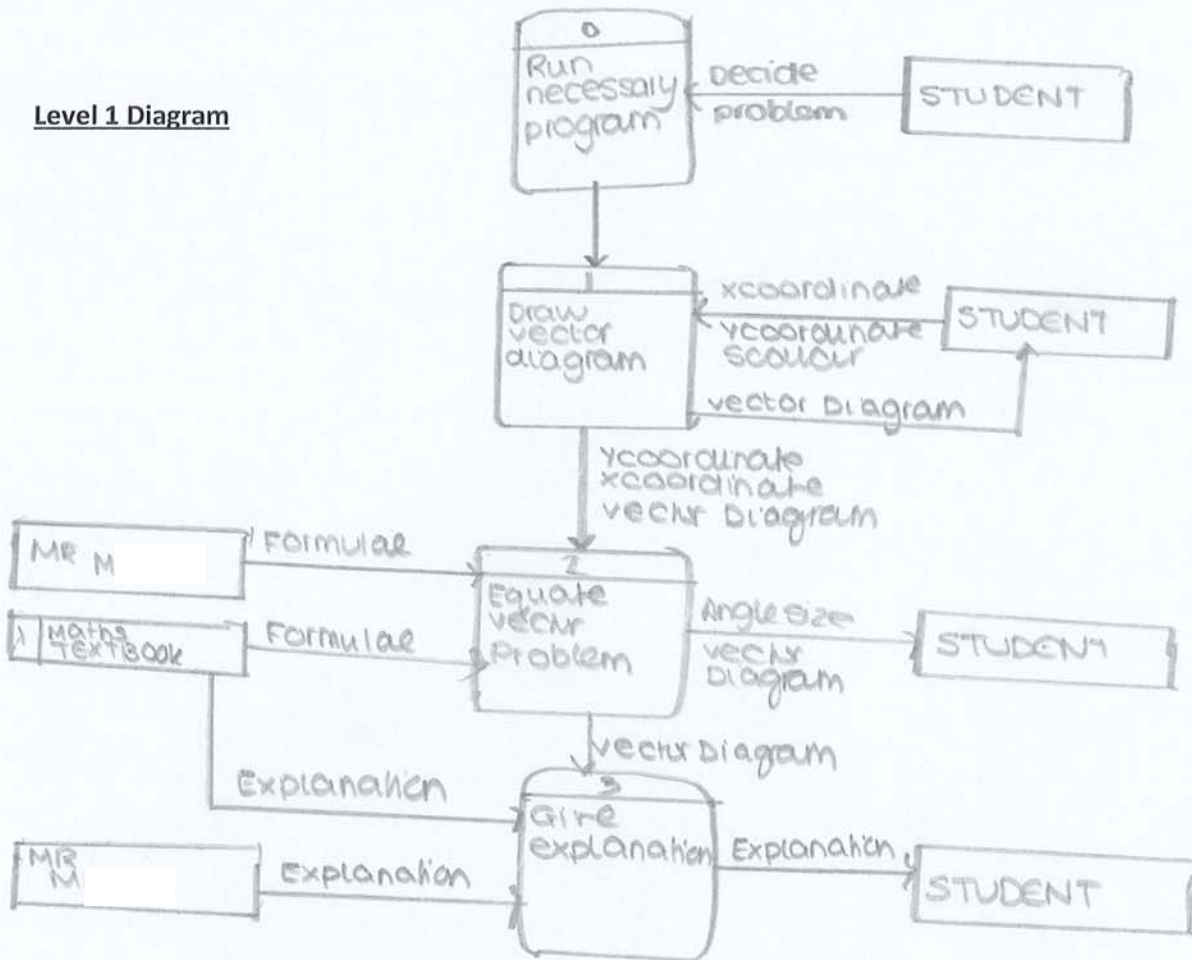 Level 1 Diagram
0
Run
necessary
program
Decide
problem
STUDENT
1
Draw
vector
diagram
xcoordinate
ycoordinate
STUDENT
vector Diagram
ycoordinate
xcoordinate
vector Diagram
MR M
Formulae
1 Maths
TEXTBOOK
Formulae
2
Equate
vector
problem
Angle size
vector
Diagram
STUDENT
vector Diagram
3
Give
explanation
Explanation
MR
M
Explanation
Explanation
STUDENT